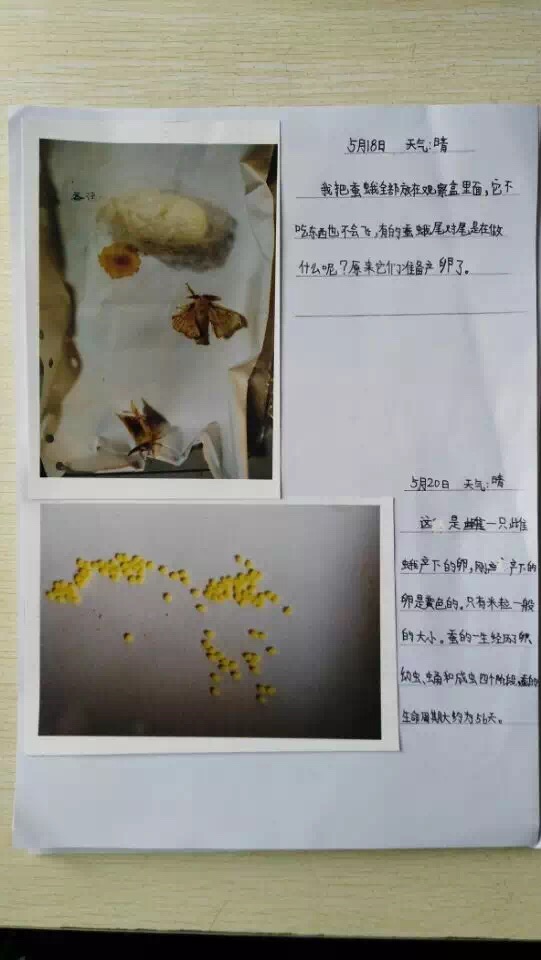 5月18日 天气:晴
我把蚕蛾全部放在观察盒里面,它不
吃东西也不会飞,有的蚕蛾尾对尾是在做
什么呢?原来它们准备产卵了。
5月20日 天气:晴
这是雌一只雌
蛾产下的卵,刚产下的
卵是黄色的。只有米粒一般
的大小。蚕的一生经历了卵、
幼虫、蛹和成虫四个阶段,蚕的
生命周期大约为56天。